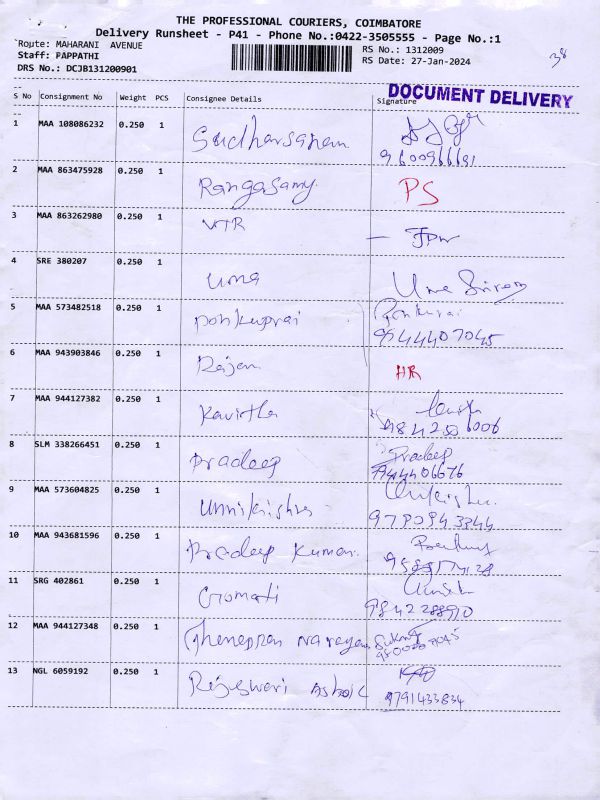 THE PROFESSIONAL COURIERS, COIMBATORE
Delivery Runsheet - P41 - Phone No.:0422-3505555 - Page No.:1
Route: MAHARANI AVENUE
Staff: PAPPATHI
DRS No.: DCJB131200901
RS No.: 1312009
RS Date: 27-Jan-2024
38
DOCUMENT DELIVERY
S No Consignment No Weight PCS Consignee Details Signature
1 MAA 108086232 0.250 1 Sudharsanam
9600966691
2 MAA 863475928 0.250 1 Rangasamy PS
3 MAA 863262980 0.250 1 VTR
4 SRE 380207 0.250 1 Uma Uma Sriram
5 MAA 573482518 0.250 1 Ponkumar
9544407045
6 MAA 943903846 0.250 1 Rajan HR
7 MAA 944127382 0.250 1 Kavitha
8 SLM 338266451 0.250 1 Pradeep Pradeep
9 MAA 573604825 0.250 1 Unnikrishna
10 MAA 943681596 0.250 1 Pradeep Kumar
11 SRG 402861 0.250 1 Gomati
12 MAA 944127348 0.250 1 Narayan
13 NGL 6059192 0.250 1 Rajeswari Ashok
9791433834